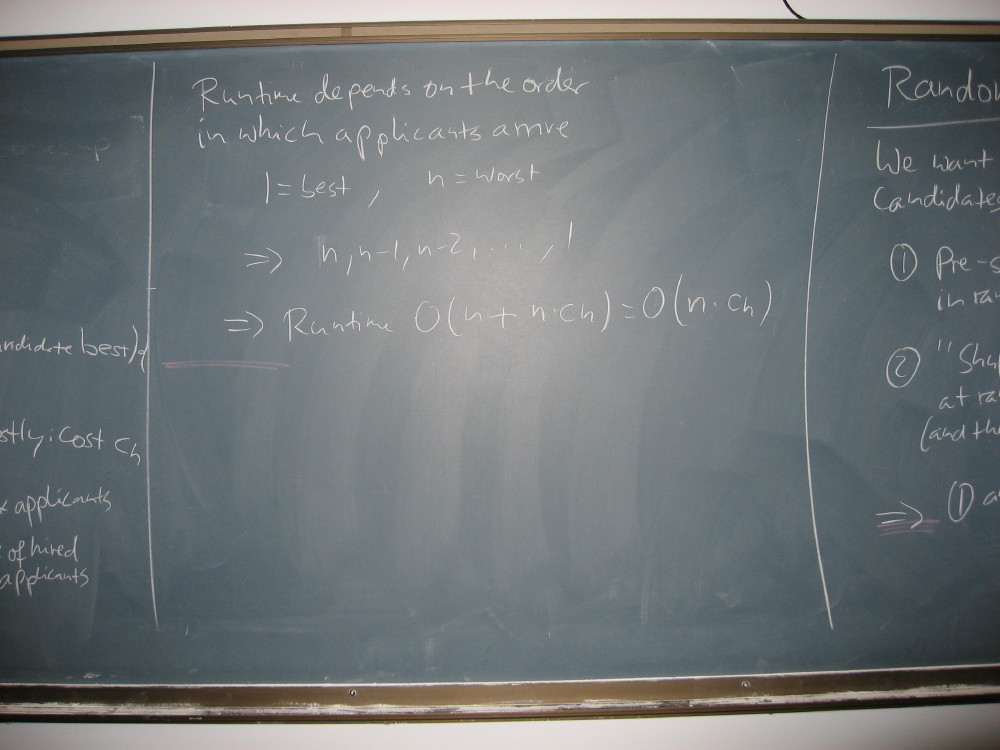 andidate best)
stly: cost ch
applicants
of hired
applicants
Runtime depends on the order
in which applicants arrive
1 = best , n = worst
=> n, n-1, n-2, ..., 1
=> Runtime O(n + n·ch) = O(n·ch)
Rando
We want
Candidates
① Pre-s
in ra
② "Shu
at ra
(and th
=> ① a